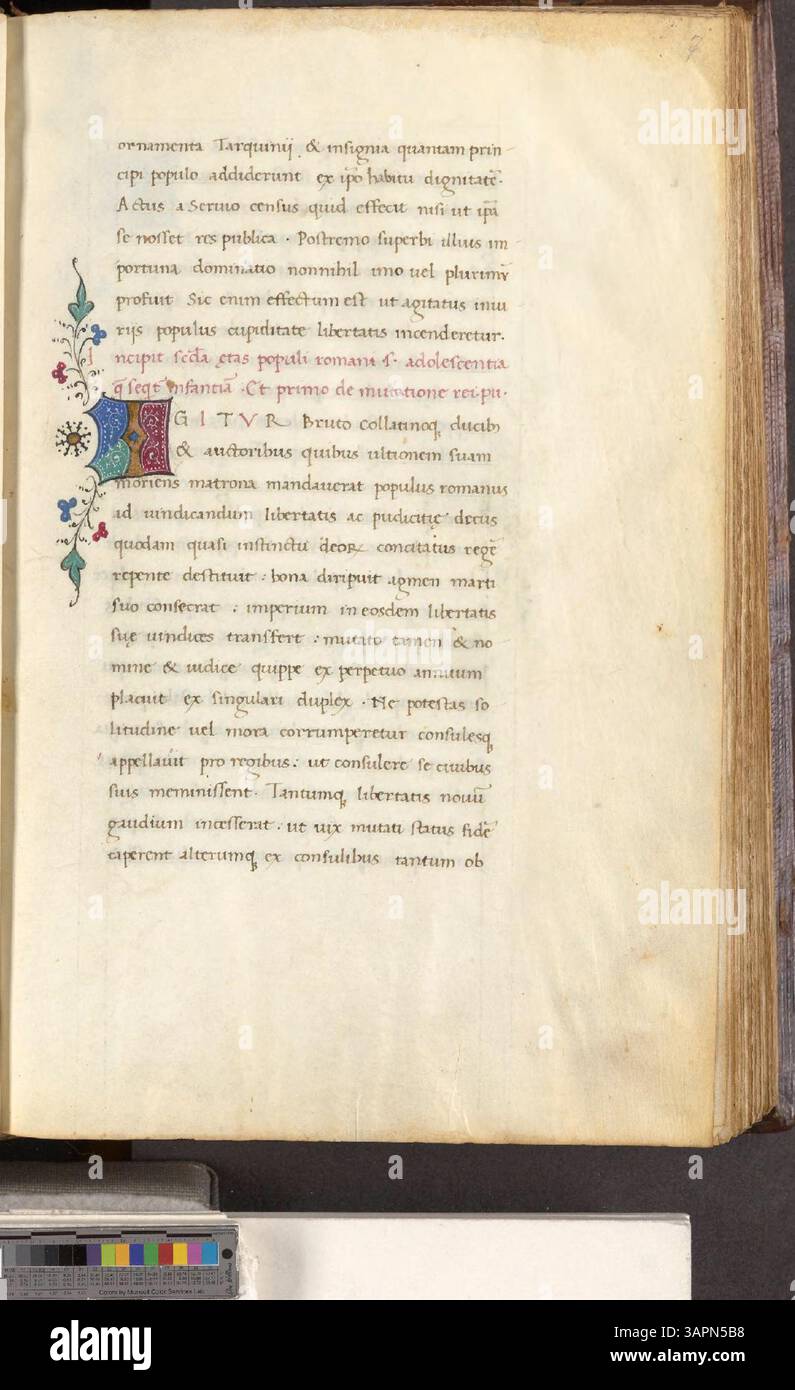 7
ornamenta Tarquinij & insignia quantam prin
cipi populo addiderunt ex ip̄o habitu dignitatē.
Actus a Seruio census quid effecit nisi ut ip̄a
se nosset res publica . Postremo superbi illius im
portuna dominatio nonnihil imo uel plurimū
profuit Sic enim effectum est ut agitatus iniu
rijs populus cupiditate libertatis incenderetur.
Incipit scđa ętas populi romani .s. adolescentia
q̄ seqt̄ infantiā . Et primo de mutatione rei . pu .
IGITVR Bruto Collatinoq; ducib;
& auctoribus quibus ultionem suam
moriens matrona mandauerat populus romanus
ad uindicandum libertatis ac pudicitię decus
quodam quasi instinctu deoꝝ concitatus regē
repente destituit : bona diripuit agmen marti
suo consecrat : imperium in eosdem libertatis
suę uindices transfert : mutato tamen & no
mine & iudice quippe ex perpetuo annuum
placuit ex singulari duplex . Ne potestas so
litudine uel mora corrumperetur consulesq;
appellauit pro regibus : ut consulere se ciuibus
suis meminissent . Tantumq; libertatis nouū
gaudium incesserat . ut uix mutati status fidē
caperent alterumq; ex consulibus tantum ob
alamy
Colors by Munsell Color Services Lab
Image ID: 3APN5B8
www.alamy.com